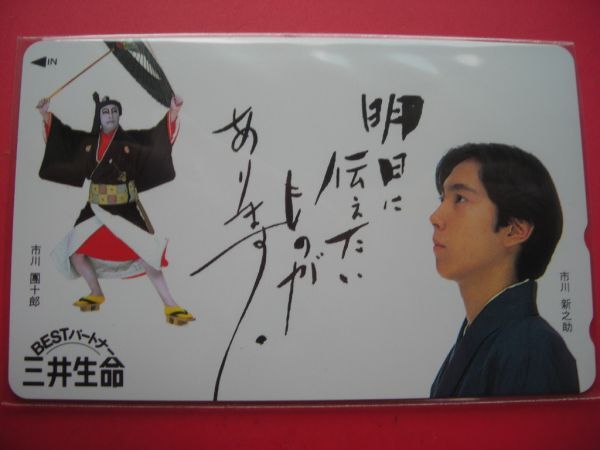 IN
明日に
伝えたい
ものが
あります。
市川 團十郎
市川 新之助
BESTパートナー
三井生命